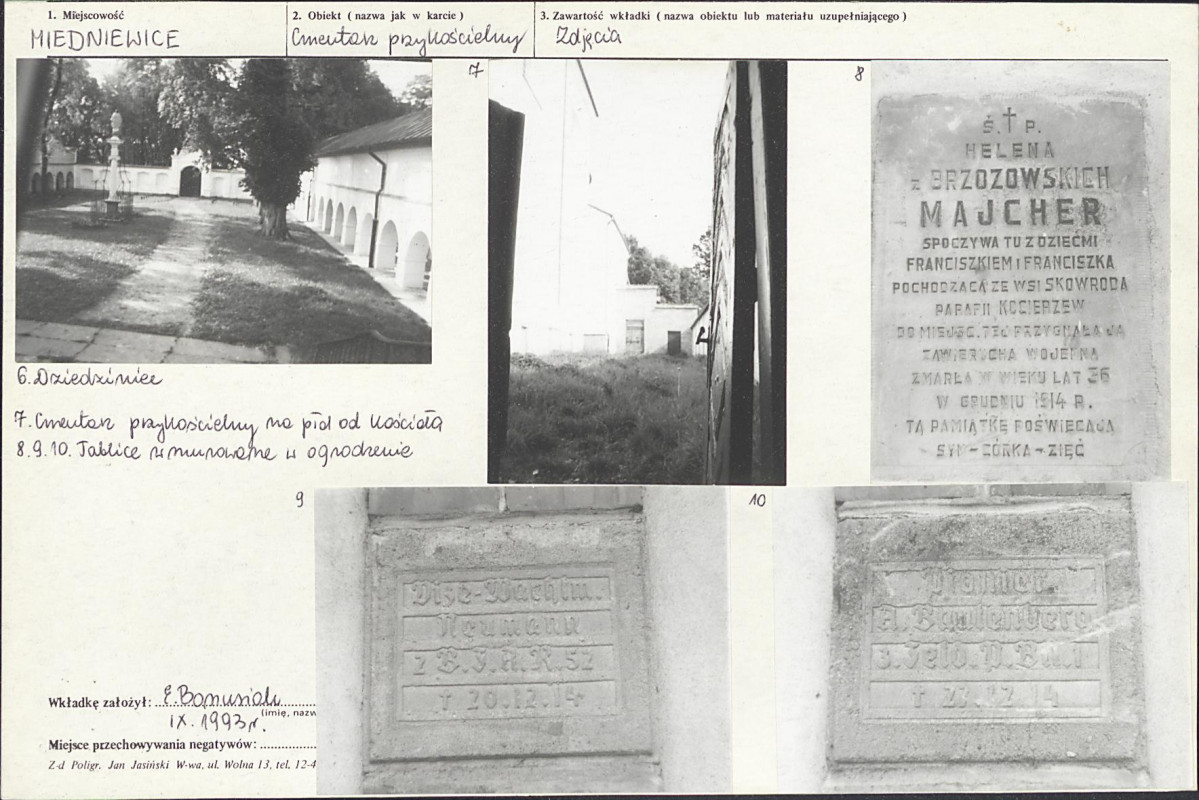 1. Miejscowość
MIEDNIEWICE
2. Obiekt ( nazwa jak w karcie )
Cmentarz przykościelny
3. Zawartość wkładki ( nazwa obiektu lub materiału uzupełniającego )
Zdjęcia
6. Dziedziniec
7. Cmentarz przykościelny na płd od kościoła
8.9.10. Tablice wmurowane w ogrodzenie
7
8
Ś. † P.
HELENA
z BRZOZOWSKICH
MAJCHER
SPOCZYWA TU Z DZIEĆMI
FRANCISZKIEM I FRANCISZKA
POCHODZĄCA ZE WSI SKOWRODA
PARAFII KOCIERZEW
DO MIEJSC. TEJ PRZYGNAŁA JĄ
ZAWIERUCHA WOJENNA
ZMARŁA W WIEKU LAT 36
W GRUDNIU 1914 R.
TĄ PAMIĄTKĘ POŚWIĘCAJĄ
SYN - CÓRKA - ZIĘĆ
9
Vize-Wachtm.
Neumann
2 B. F. A. R. 52
† 20.12.14
10
Pionier
A.
3. Feld. P. B. N. 1
† 14
Wkładkę założył:
IX. 1993 r.
(imię, nazw
Miejsce przechowywania negatywów:
Z-d Poligr. Jan Jasiński W-wa, ul. Wolna 13, tel. 12-4